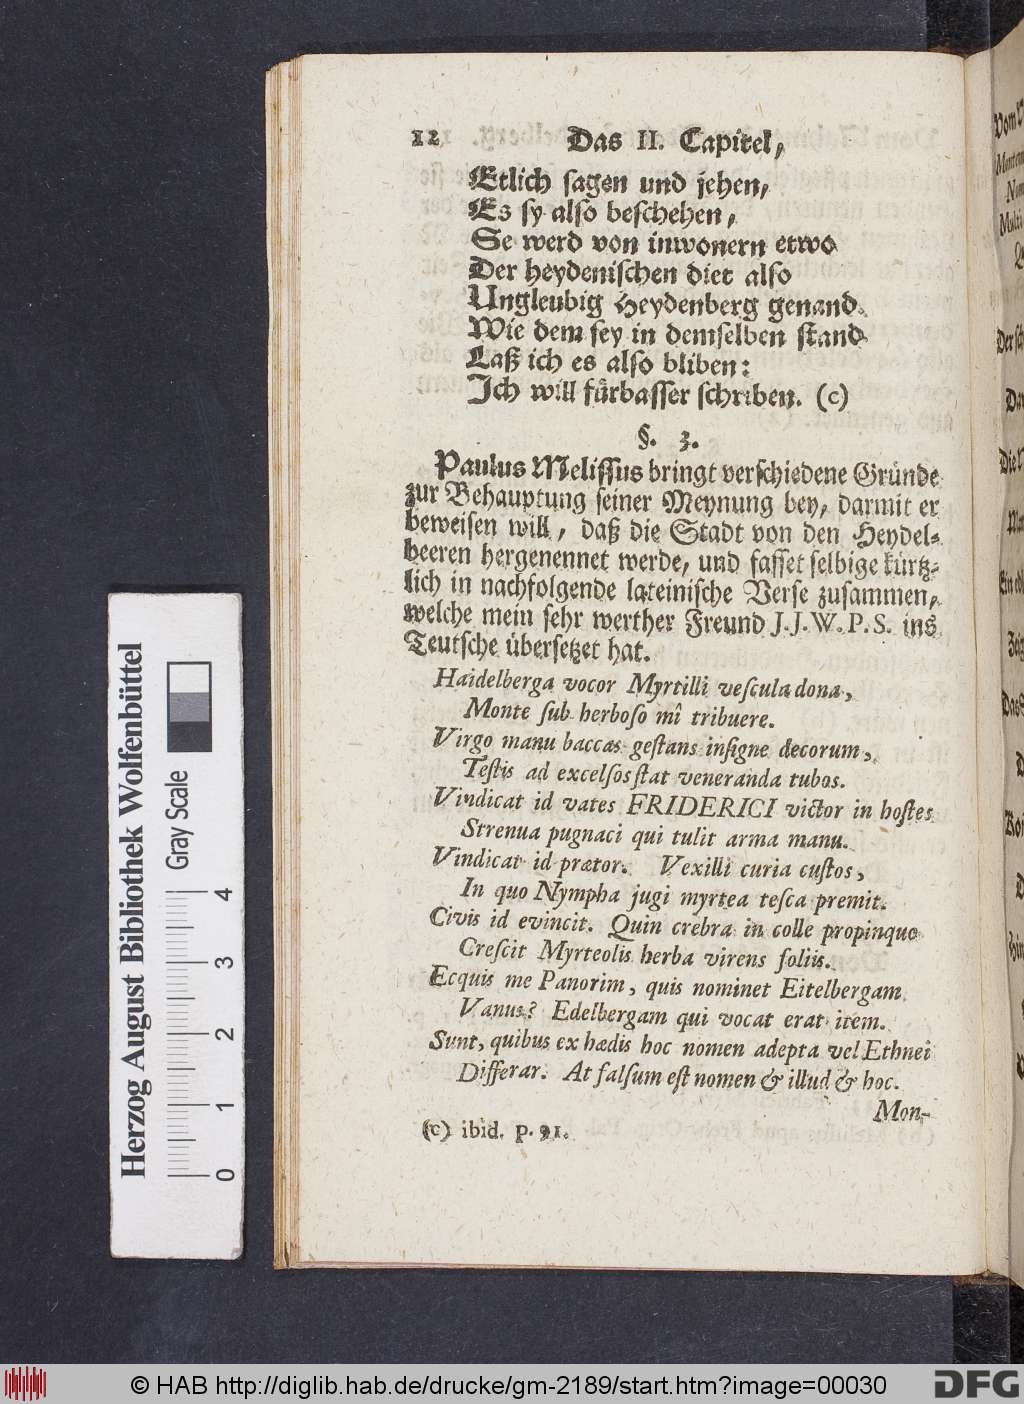 12 Das II. Capitel,
Etlich sagen und jehen,
Es sy also beschehen,
Se werd von inwonern etwo
Der heydenischen diet also
Ungleubig Heydenberg genand.
Wie dem sey in demselben stand
Laß ich es also bliben:
Ich will fürbasser schriben. (c)
§. 3.
Paulus Melissus bringt verschiedene Gründe
zur Behauptung seiner Meynung bey, darmit er
beweisen will, daß die Stadt von den Heydel-
beeren hergenennet werde, und fasset selbige kürtz-
lich in nachfolgende lateinische Verse zusammen,
welche mein sehr werther Freund J. J. W. P. S. ins
Teutsche übersetzet hat.
Haidelberga vocor Myrtilli vescula dona,
Monte sub herboso mî tribuere.
Virgo manu baccas gestans insigne decorum,
Testis ad excelsos stat veneranda tubos.
Vindicat id vates FRIDERICI victor in hostes
Strenua pugnaci qui tulit arma manu.
Vindicat id prætor. Vexilli curia custos,
In quo Nympha jugi myrtea tesca premit.
Civis id evincit. Quin crebra in colle propinquo
Crescit Myrteolis herba virens foliis.
Ecquis me Panorim, quis nominet Eitelbergam
Vanus? Edelbergam qui vocat erat item.
Sunt, quibus ex hædis hoc nomen adepta vel Ethnei
Differar. At falsum est nomen & illud & hoc.
Mon-
(c) ibid. p. 91.
Herzog August Bibliothek Wolfenbüttel
Gray Scale
0 1 2 3 4
© HAB http://diglib.hab.de/drucke/gm-2189/start.htm?image=00030
DFG